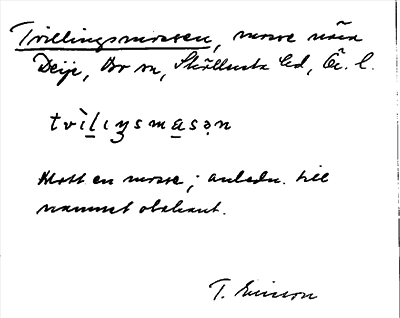 Tvillingsmossen, mosse nära
Deije, Bo sn, Skyllersta hd, Ör. l.
tvìlıŋsmasən
Blott en mosse; anledn. till
namnet obekant.
T. Ericsson